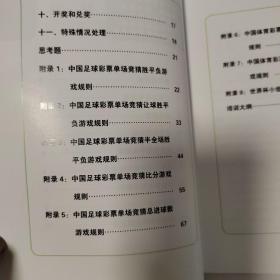 十、开奖和兑奖 17
十一、特殊情况处理 18
思考题 21
附录 1：中国足球彩票单场竞猜胜平负游
戏规则 22
附录 2：中国足球彩票单场竞猜让球胜平
负游戏规则 33
附录 3：中国足球彩票单场竞猜半全场胜
平负游戏规则 44
附录 4：中国足球彩票单场竞猜比分游戏
规则 55
附录 5：中国足球彩票单场竞猜总进球数
游戏规则 67
附录 6：中国体育彩
规则
附录 7：中国体育彩
戏规则
附录 8：世界杯小组
培训大纲